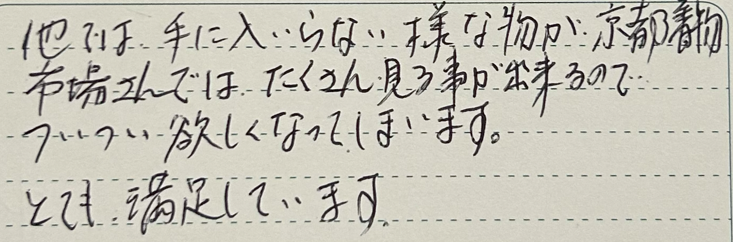 他では手に入いらない様な物が京都着物
市場さんでは、たくさん見る事が出来るので
ついつい欲しくなってしまいます。
とても満足しています。